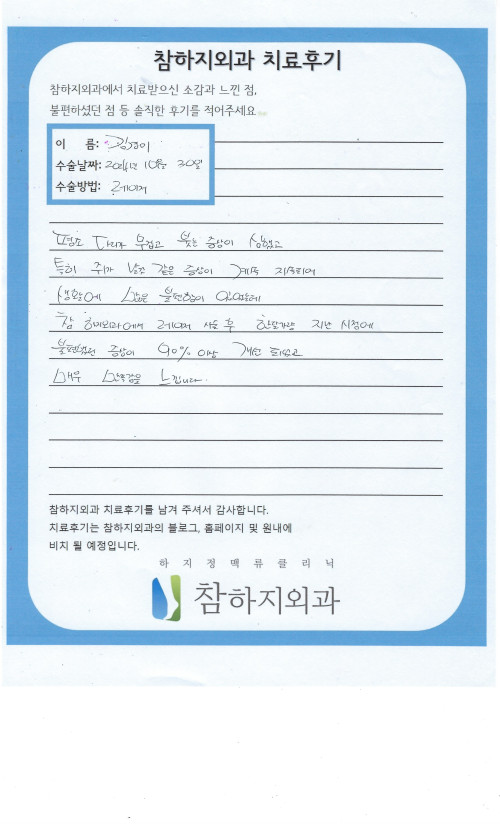 참하지외과 치료후기
참하지외과에서 치료받으신 소감과 느낀 점,
불편하셨던 점 등 솔직한 후기를 적어주세요
이 름:
수술날짜: 2024년 10월 30일
수술방법: 레이저
평소 다리가 무겁고 붓는 증상이 심했고
특히 쥐가 날것 같은 증상이 계속 지속되어
생활에 많은 불편함이 있었는데
참 하지외과에서 레이저 시술 후 한달가량 지난 시점에
불편했던 증상이 90% 이상 개선 되었고
매우 만족감을 느낍니다.
참하지외과 치료후기를 남겨 주셔서 감사합니다.
치료후기는 참하지외과의 블로그, 홈페이지 및 원내에
비치 될 예정입니다.
하지정맥류클리닉
참하지외과